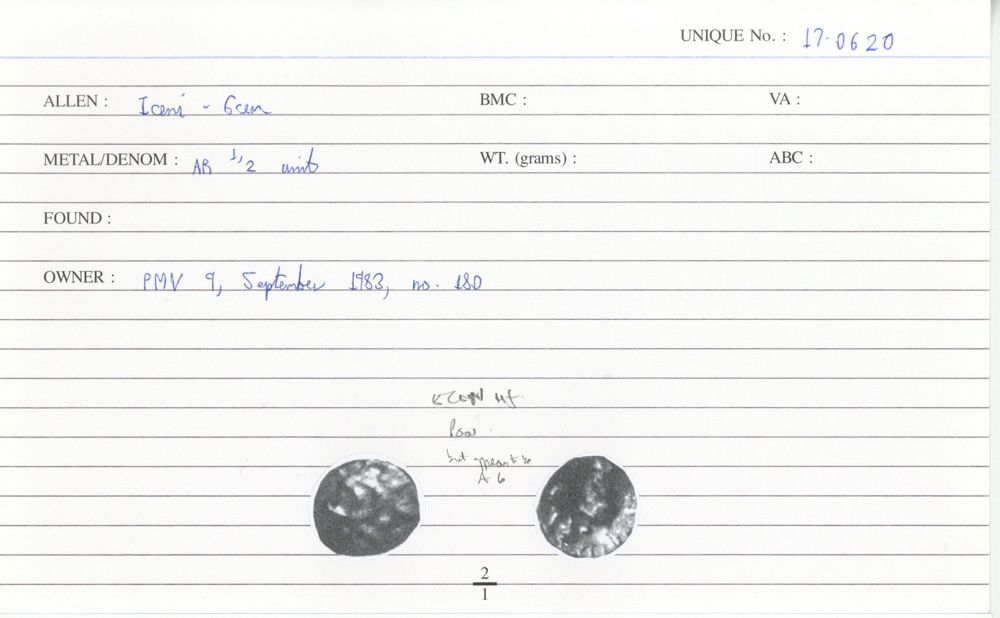 UNIQUE No. : 17.0620
ALLEN : Iceni - Ecen BMC : VA :
METAL/DENOM : AR 1/2 unit WT. (grams) : ABC :
FOUND :
OWNER : PMV 9, September 1983, no. 180
Poor.
but meant to be
A 6
2
1